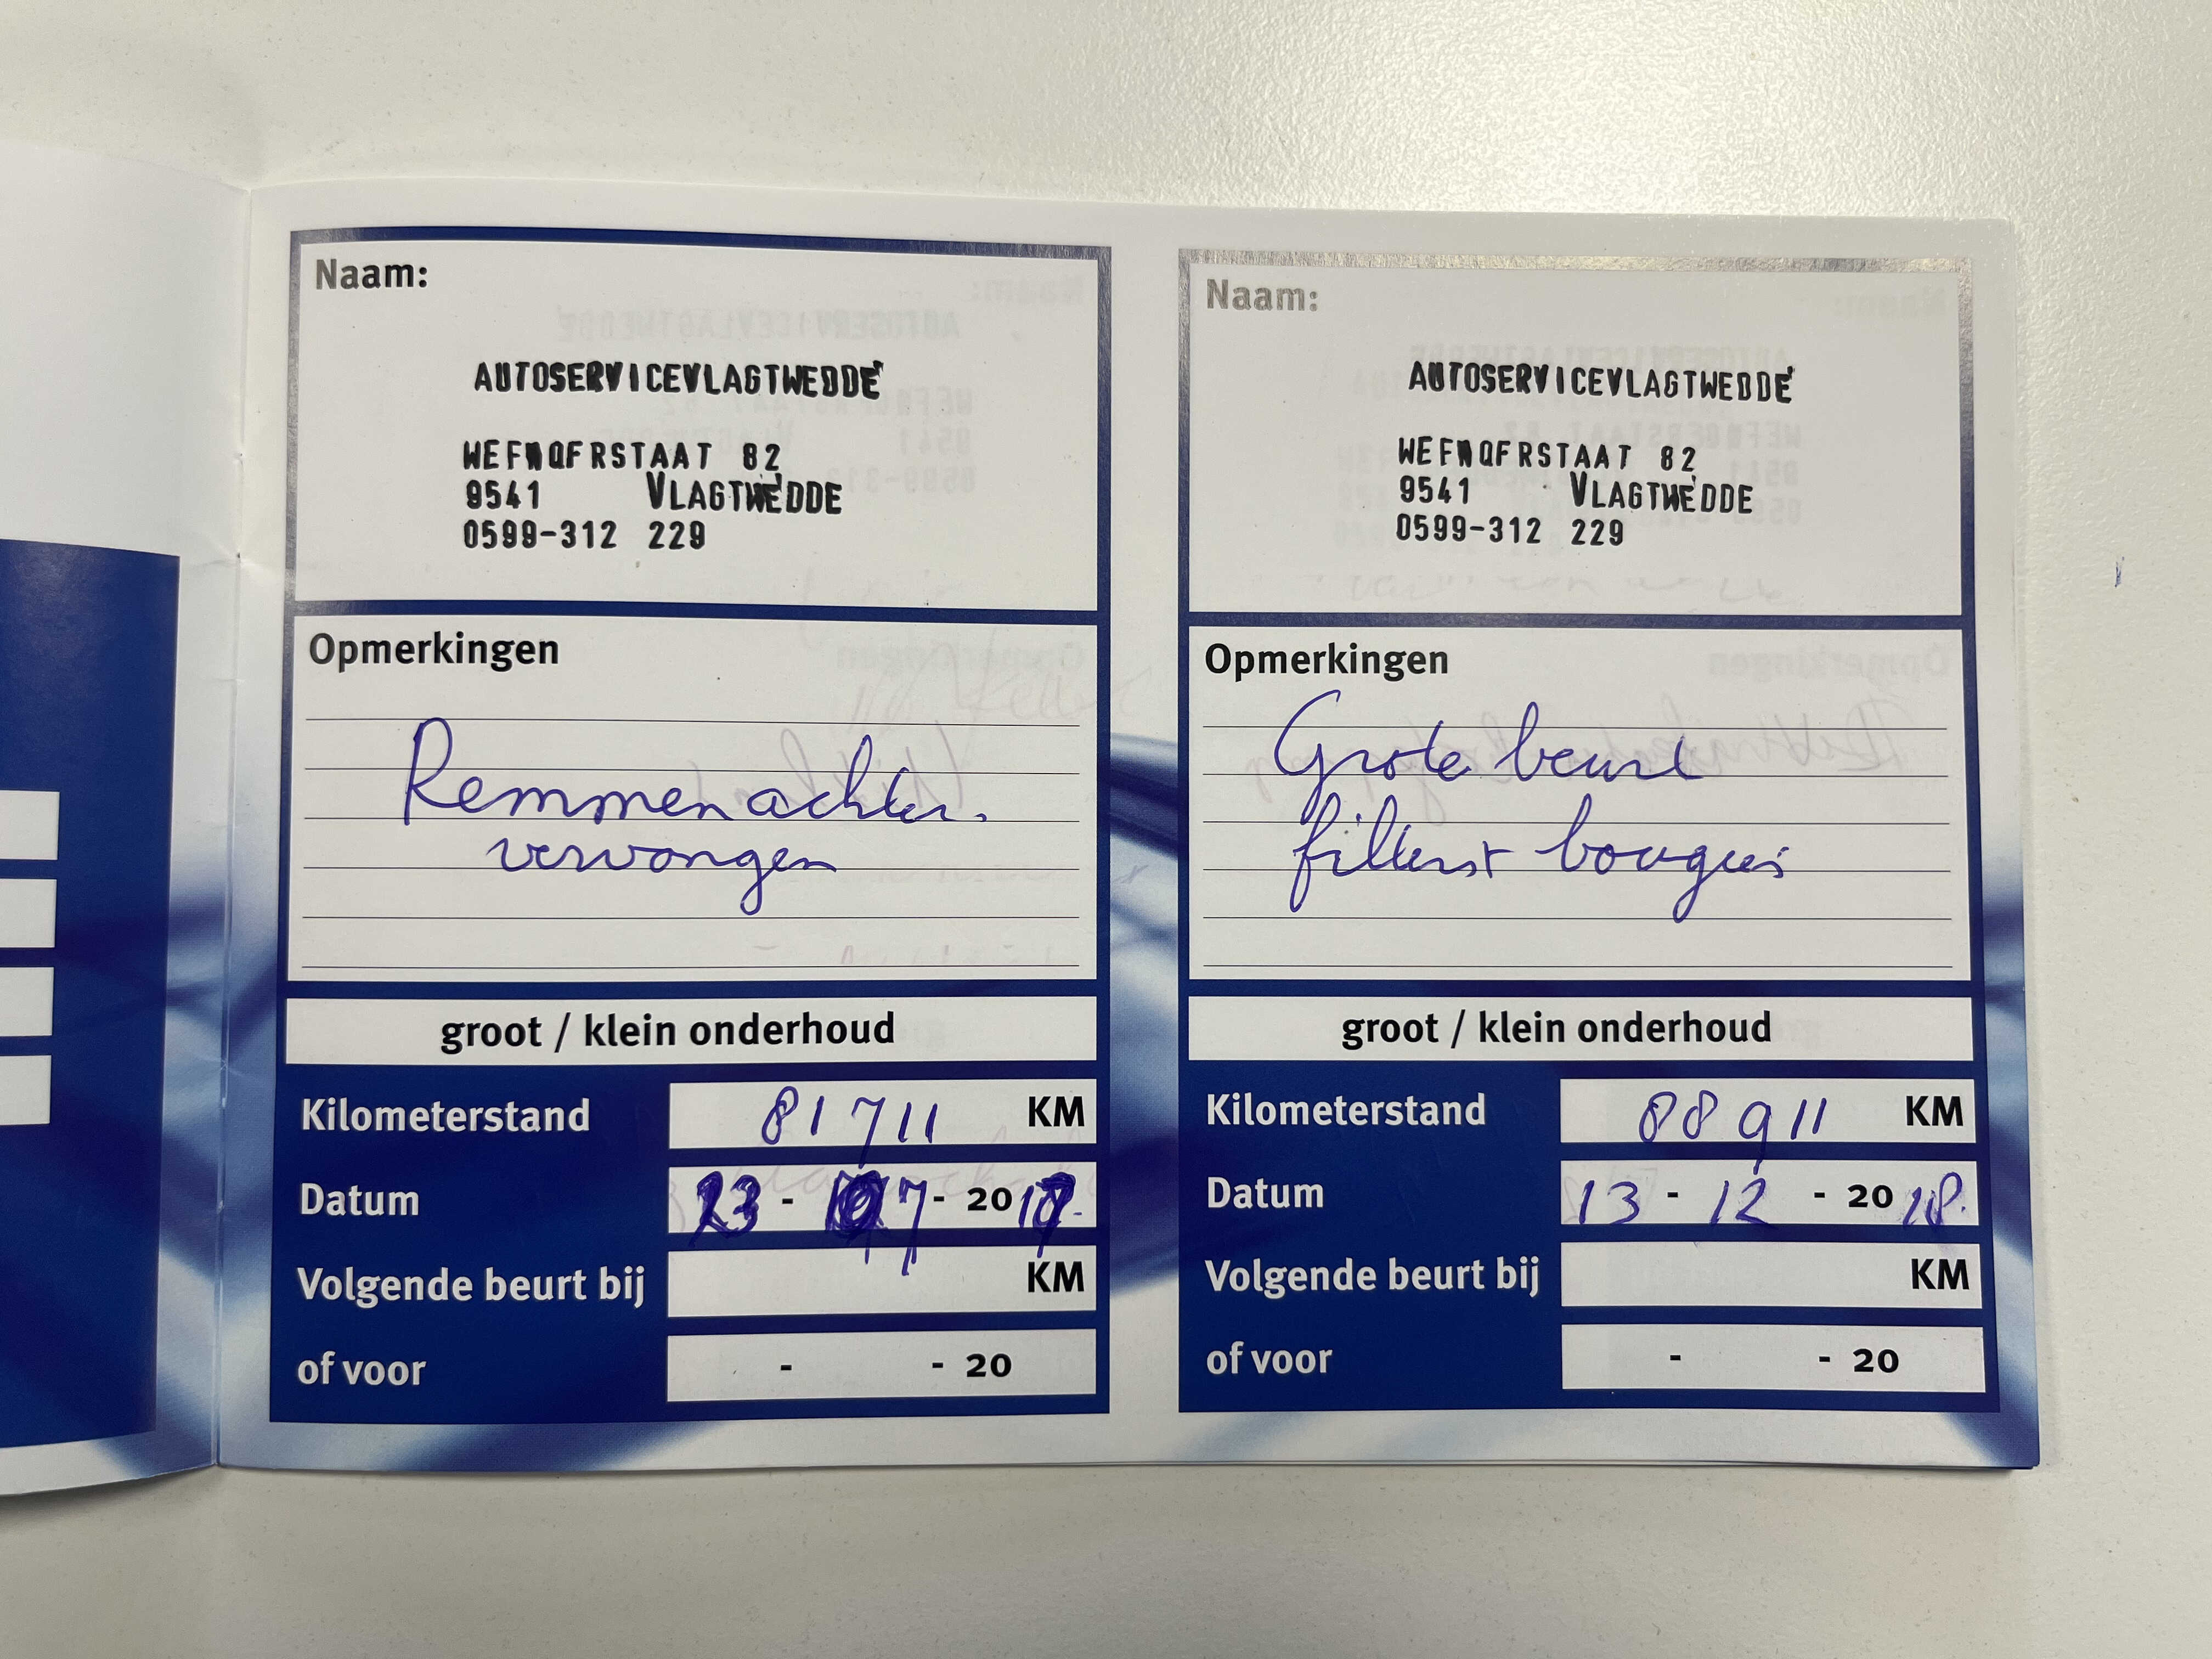 Naam:
AUTOSERVICEVLAGTWEDDE
WEFNQFRSTAAT 82
9541 VLAGTWEDDE
0599-312 229
Opmerkingen
Remmen achter.
vervangen
groot / klein onderhoud
Kilometerstand 81711 KM
Datum 23 - 7 - 20
Volgende beurt bij KM
of voor - - 20
Naam:
AUTOSERVICEVLAGTWEDDE
WEFNQFRSTAAT 82
9541 VLAGTWEDDE
0599-312 229
Opmerkingen
Grote beurt
filters + bougies
groot / klein onderhoud
Kilometerstand 88911 KM
Datum 13 - 12 - 20 18.
Volgende beurt bij KM
of voor - - 20